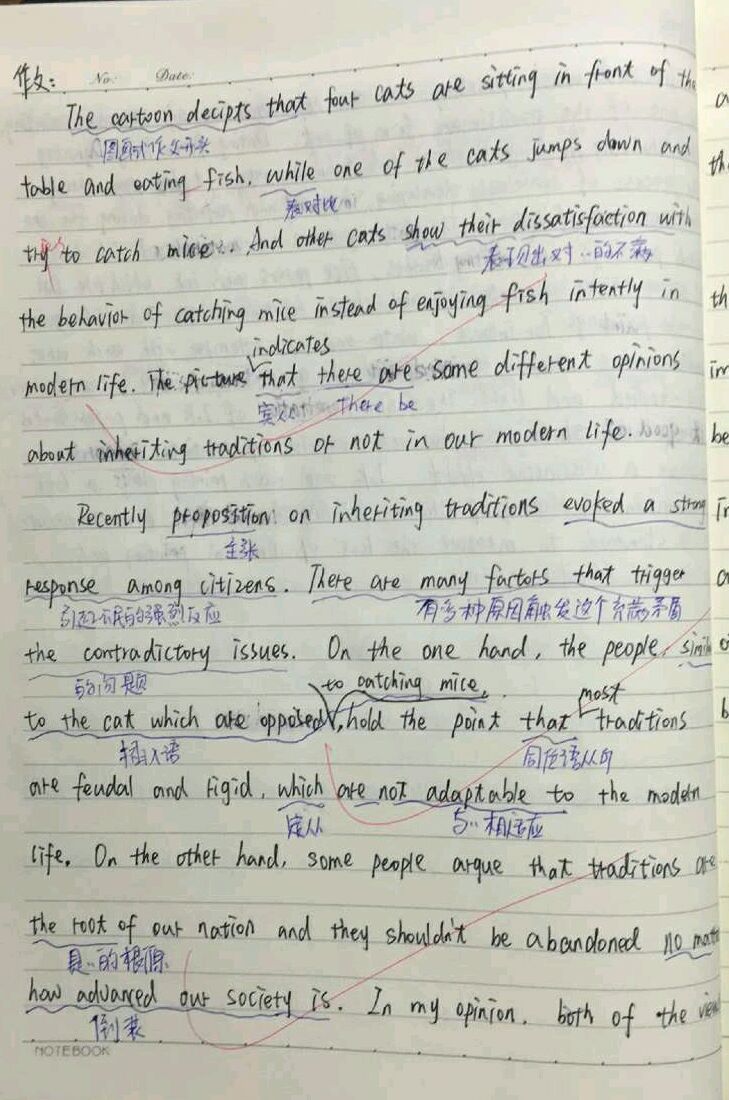 作文: No: Date:
The cartoon decipts that four cats are sitting in front of the
图画式作文开头
table and eating fish, while one of the cats jumps down and
表对比
try to catch mice. And other cats show their dissatisfaction with
表现出对..的不满
the behavior of catching mice instead of enjoying fish intently in
indicates
modern life. The picture that there are some different opinions
there be
about inheriting traditions or not in our modern life.
Recently proposition on inheriting traditions evoked a strong
主张
response among citizens. There are many factors that trigger
引起市民的强烈反应 有多种原因触发这个充满矛盾
the contradictory issues. On the one hand, the people, simil
的问题 to catching mice, most
to the cat which are opposed, hold the point that traditions
插入语 同位语从句
are feudal and rigid, which are not adaptable to the modern
定从 与..相适应
life. On the other hand, some people argue that traditions are
the root of our nation and they shouldn't be abandoned no matt
是..的根源
how advanced our society is. In my opinion, both of the view
倒装
NOTEBOOK